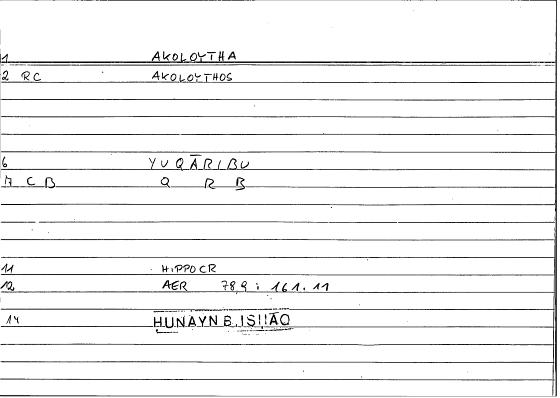 1 AKOLOYTHA
2 RC AKOLOYTHOS
6 YUQĀRIBU
7 C B Q R B
11 HIPPOCR
12 AER 789 : 161.11
14 HUNAYN B. ISHĀQ